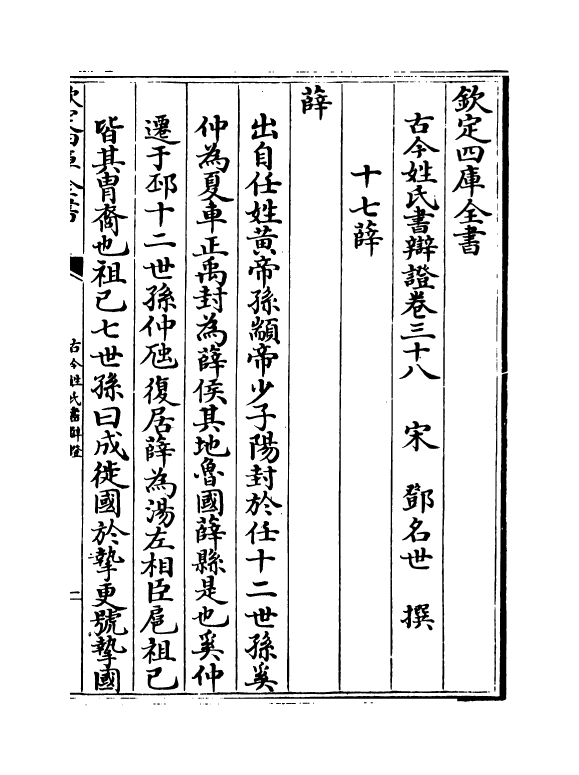 欽定四庫全書
古今姓氏書辯證卷三十八 宋 鄧名世 撰
十七薛
薛
出自任姓黄帝孫顓帝少子陽封於任十二世孫奚
仲為夏車正禹封為薛侯其地魯國薛縣是也奚仲
遷于邳十二世孫仲虺復居薛為湯左相臣扈祖已
皆其胄裔也祖已七世孫曰成徙國於摯更號摯國
欽定四庫全書
古今姓氏書辯證